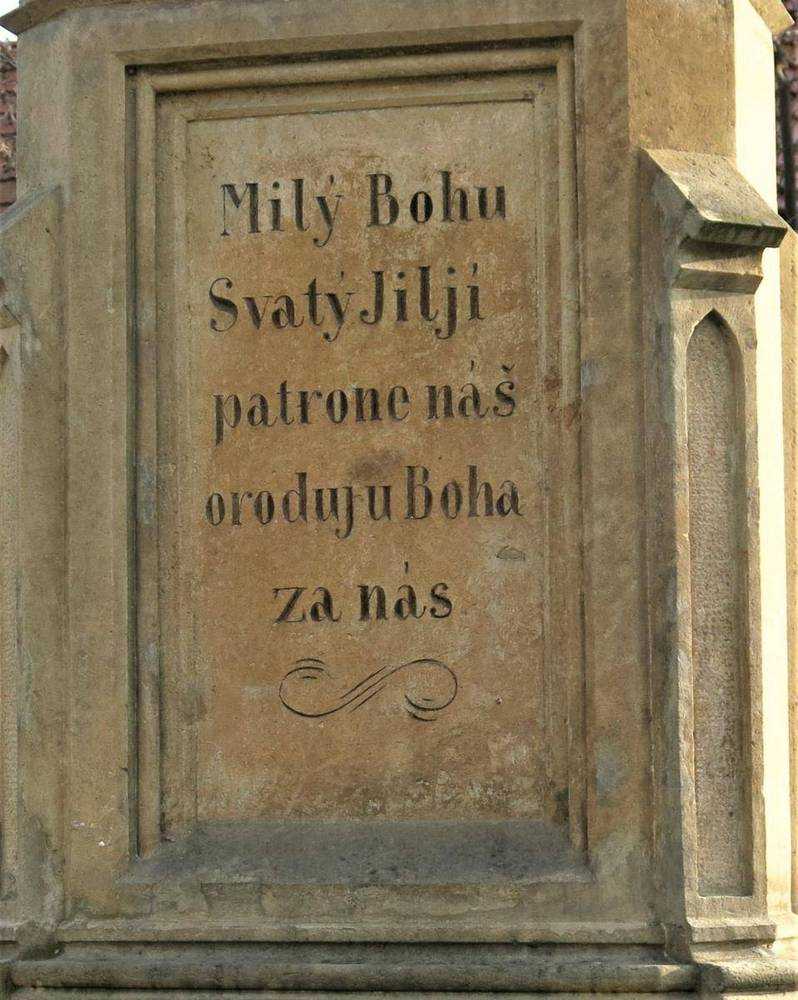 Milý Bohu
Svatý Jiljí
patrone náš
oroduj u Boha
za nás